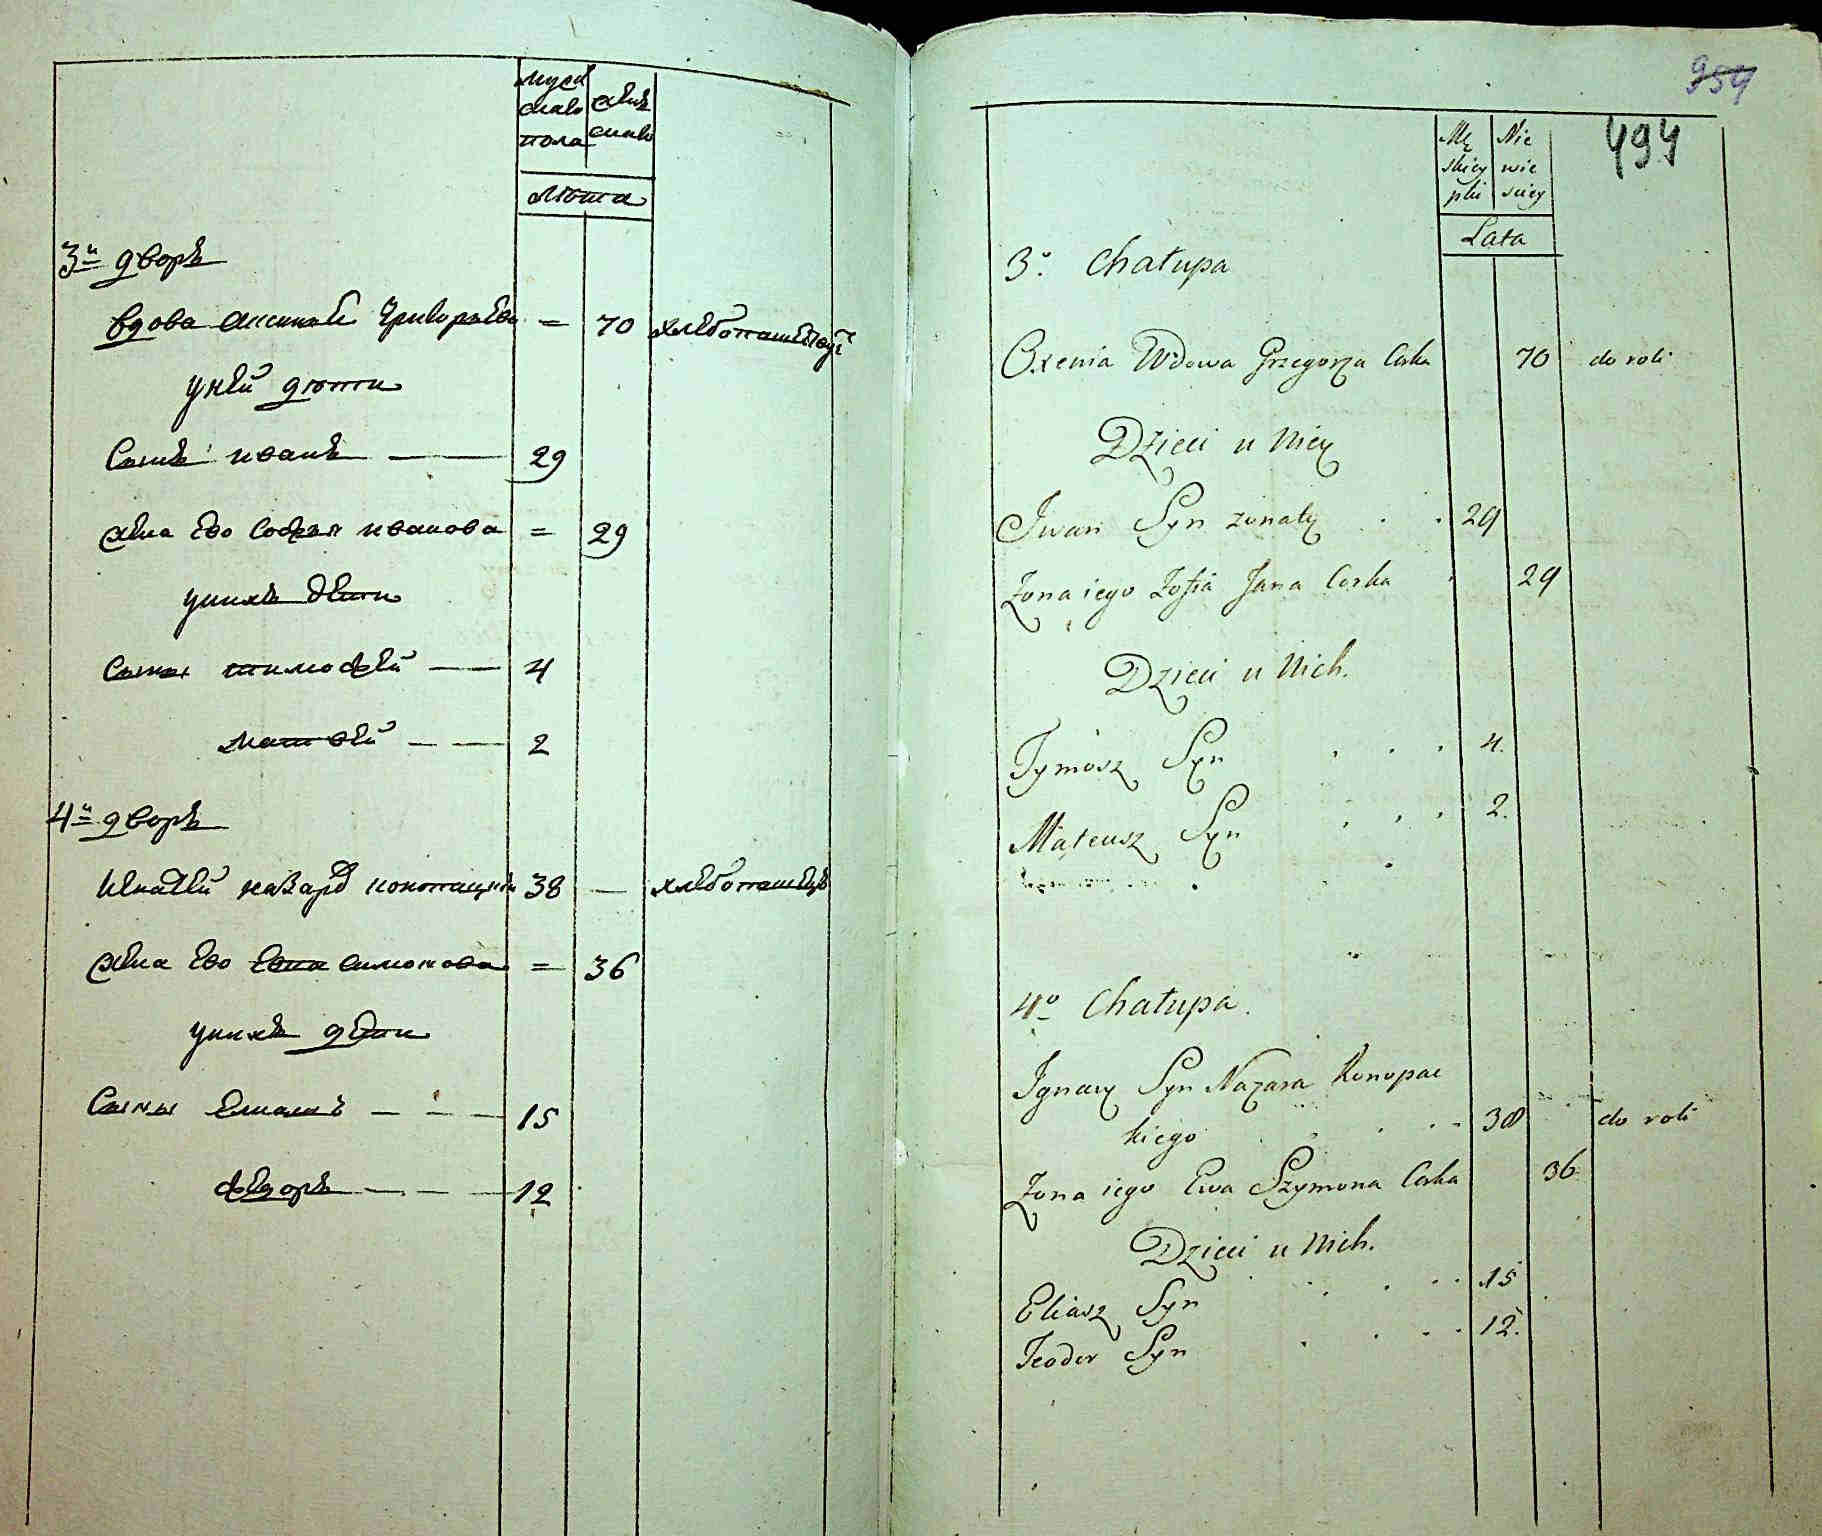 муж
скаго
пола
жен
скаго
Лѣта
3й дворъ
вдова Аксинья Григорьева = 70 хлѣбопашецъ
у ней дѣти
Сынъ иванъ — — 29
жена Ево Софья иванова = 29
у нихъ дѣти
Сыны тимофей — — 4
матвей — — 2
4й дворъ
Игнатей назаръ конопацки 38 — хлѣбопашецъ
жена Ево Евва симонова = 36
у нихъ дѣти
Сыны — — — 15
федоръ — — — 12
954
494
Mę
skiey
płci
Nie
wie
sciey
Lata
3o. Chałupa
Oxenia Wdowa Grzegorza Corka 70 do roli
Dzieci u Niey
Iwan Syn zonaty . . 29
Zona iego Zofia Jana Corka . 29
Dzieci u Nich.
Tymosz Syn . . . 4.
Mateusz Syn . . . 2.
4o Chałupa.
Ignacy Syn Nazara Konopac
kiego . . . . 38 do roli
Zona iego Ewa Szymona Corka 36
Dzieci u Nich.
Eliasz Syn . . . . 15
Teodor Syn . . . . 12.